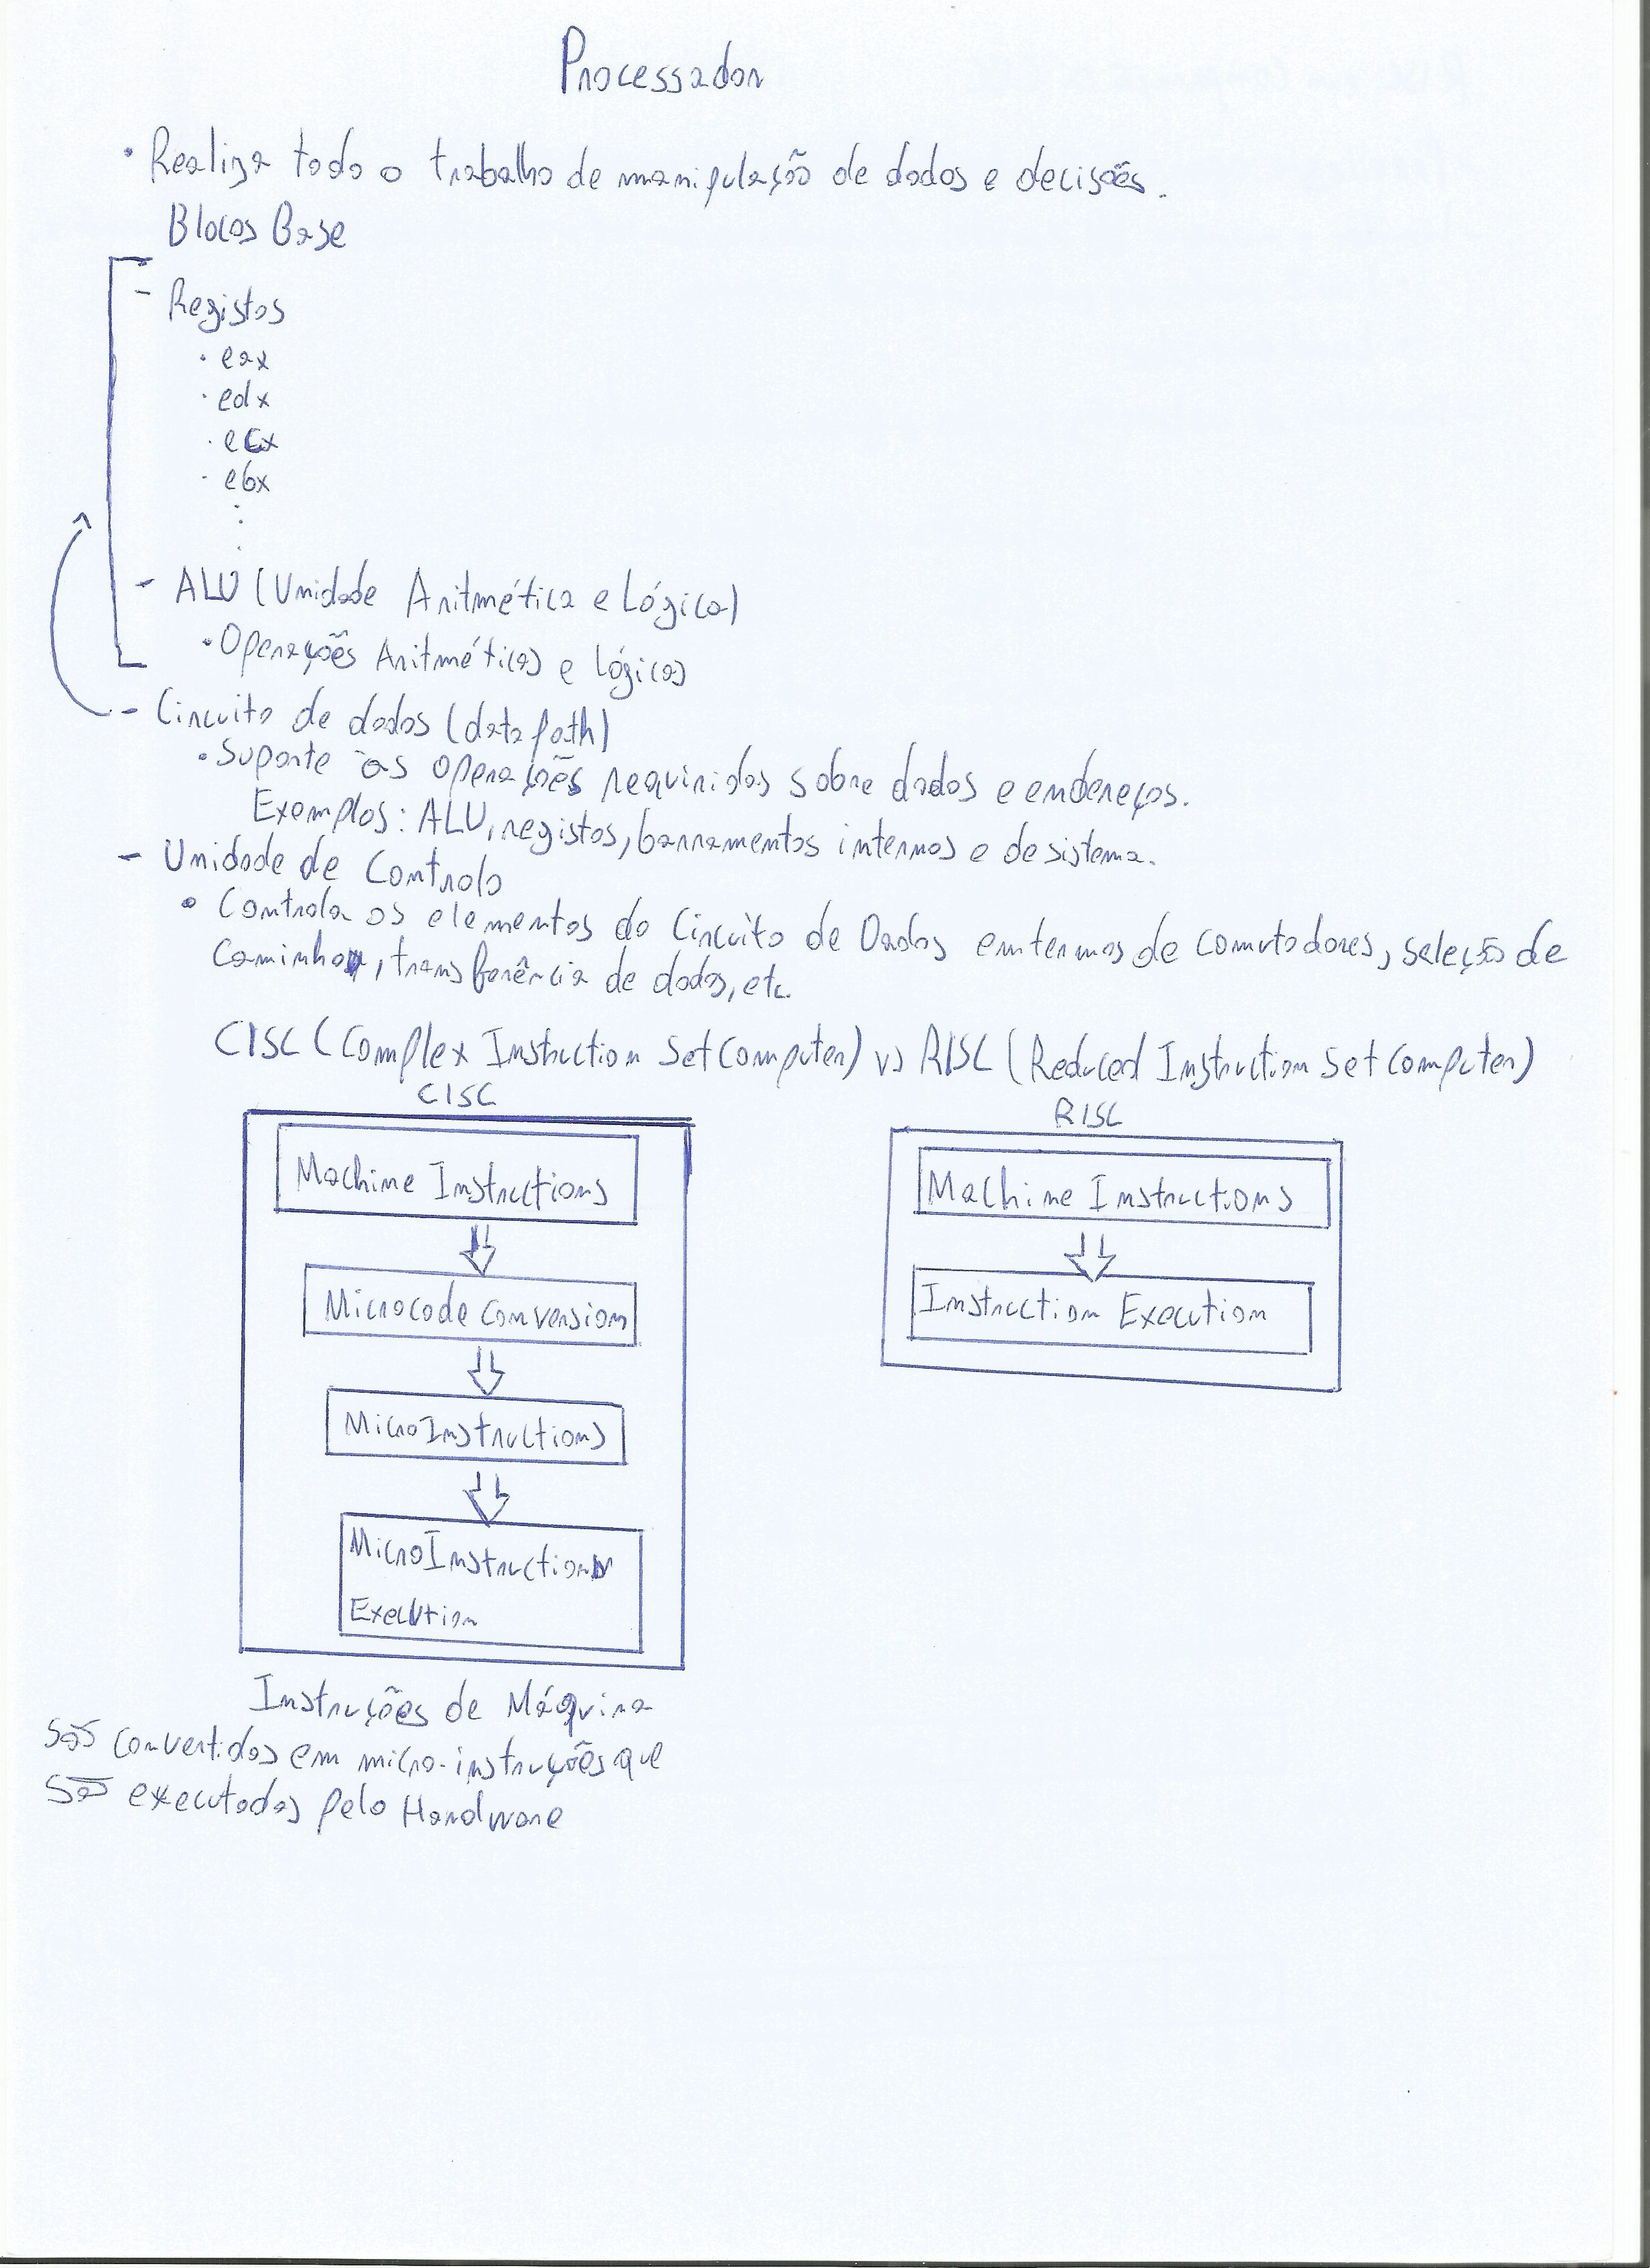 Processador
• Realiza todo o trabalho de manipulação de dados e decisões.
Blocos Base
- Registos
• eax
• edx
• ecx
• ebx
⋮
- ALU (Unidade Aritmética e Lógica)
• Operações Aritméticas e lógicas
- Circuito de dados (data path)
• Suporte às operações requiridas sobre dados e endereços.
Exemplos: ALU, registos, barramentos internos e de sistema.
- Unidade de Controlo
• Controla os elementos do Circuito de Dados em termos de comutadores, seleção de
caminho, transferência de dados, etc.
CISC (Complex Instruction Set Computer) vs RISC (Reduced Instruction Set Computer)
CISC
Machine Instructions
Microcode Conversion
MicroInstructions
MicroInstruction
Execution
Instruções de Máquina
são convertidas em micro-instruções que
são executadas pelo Hardware
RISC
Machine Instructions
Instruction Execution